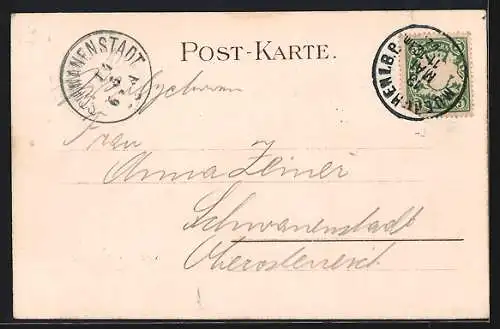 POST-KARTE.
SCHWANENSTADT
MÜNCHEN I. B.P.
MAI
Frau
Anna Zeiner
Schwanenstadt
Oberösterreich